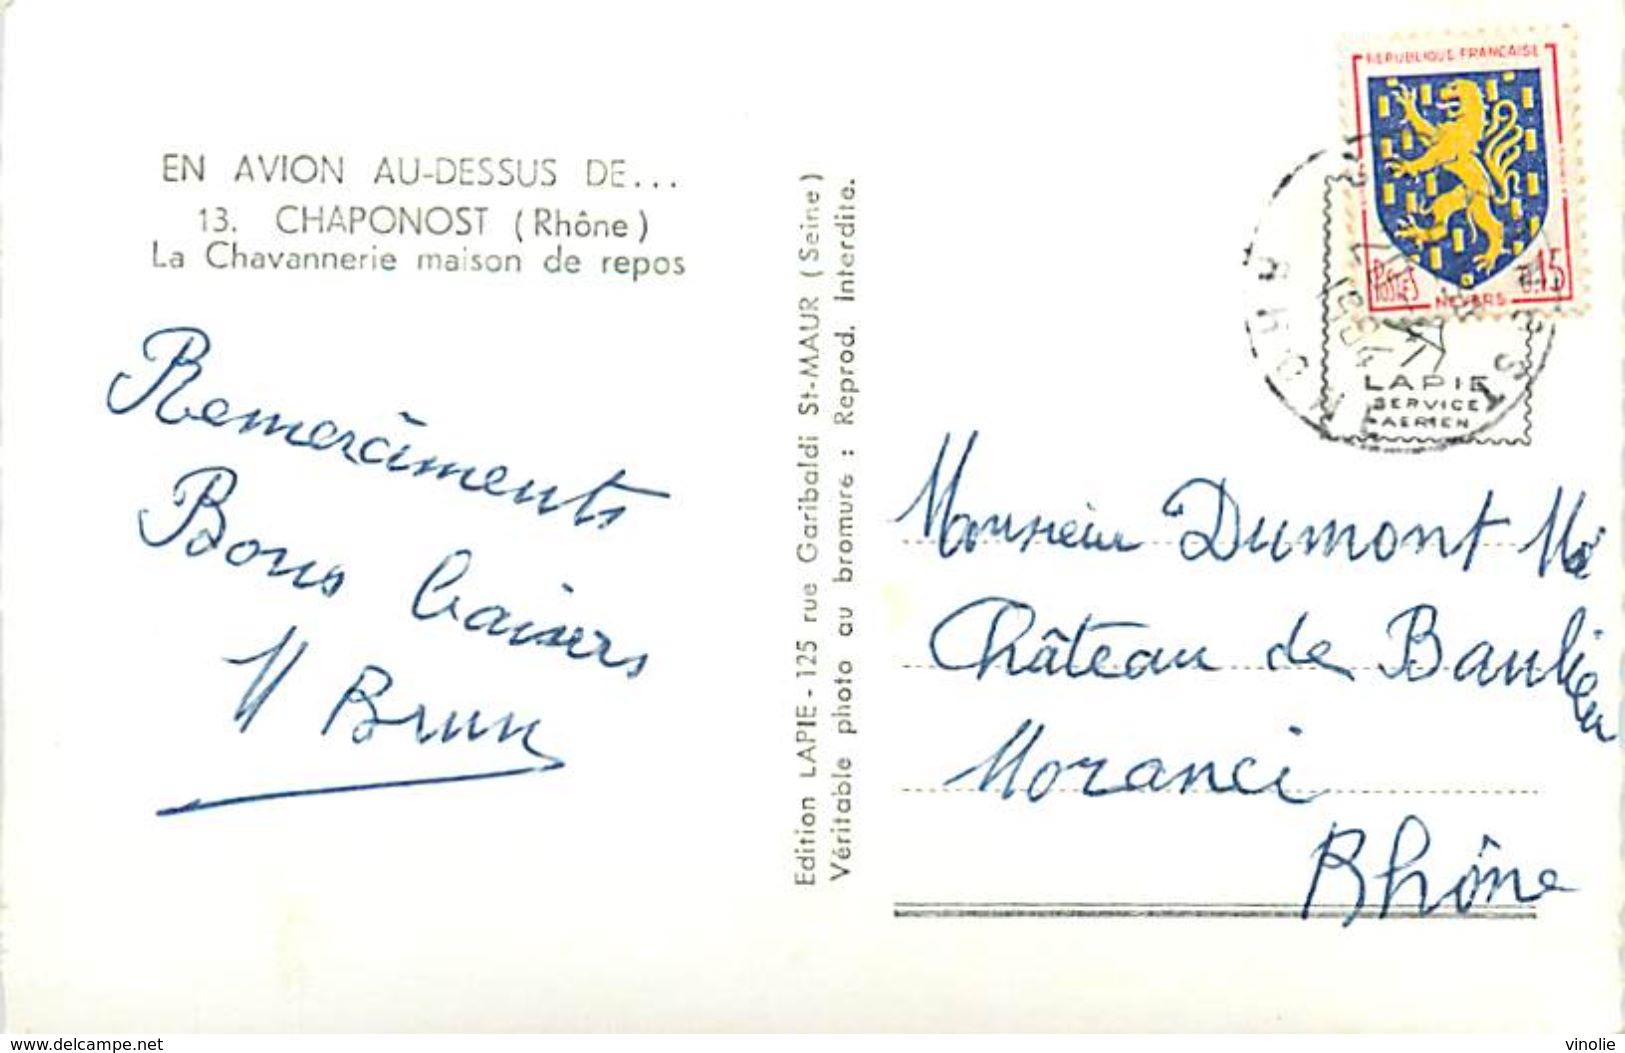 EN AVION AU-DESSUS DE...
13. CHAPONOST (Rhône)
La Chavannerie maison de repos
Remerciments
Bons baisers
M Brun
Edition LAPIE - 125 rue Garibaldi St-MAUR (Seine)
Véritable photo au bromure : Reprod. Interdite.
REPUBLIQUE FRANCAISE
POSTES
0,15
NEVERS
LAPIE
SERVICE
AERIEN
RHONE
Monsieur Dumont
Château de Baulieu
Moranci
Rhône
www.delcampe.net
vinolie